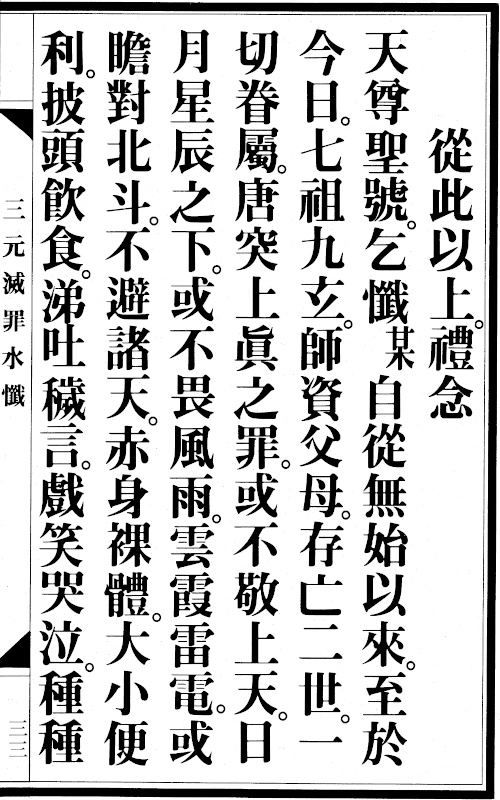 從此以上。禮念
天尊聖號。乞懺某自從無始以來。至於
今日。七祖九玄。師資父母。存亡二世。一
切眷屬。唐突上眞之罪。或不敬上天。日
月星辰之下。或不畏風雨。雲霞雷電。或
瞻對北斗。不避諸天。赤身裸體。大小便
利。披頭飲食。涕吐穢言。戲笑哭泣。種種
三元滅罪水懺
三三